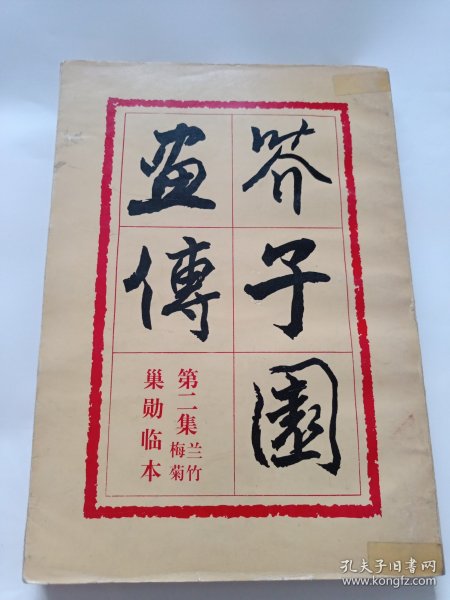 芥子園
畫傳
第二集 兰竹梅菊
巢勋临本
孔夫子旧书网
www.kongfz.com